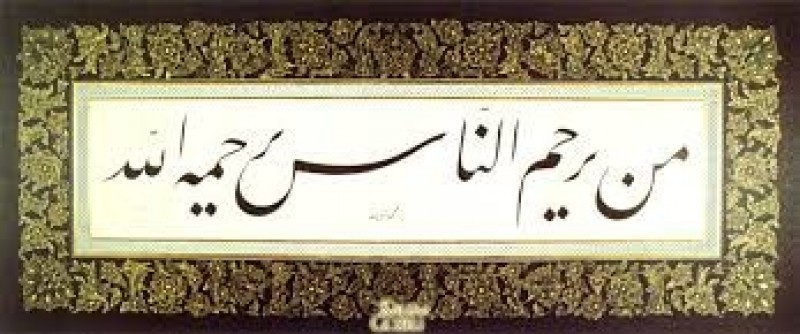 من يرحم النّاس يرحمه الله